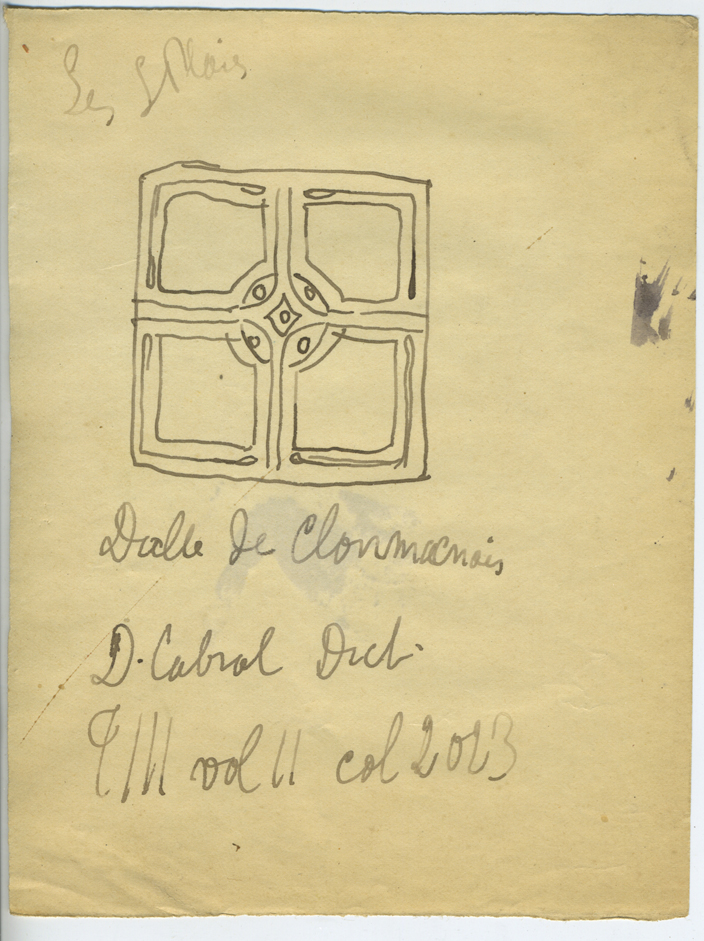 Les
Dalle de Clonmacnois
D. Cabrol Dict.
T III vol II col 2013